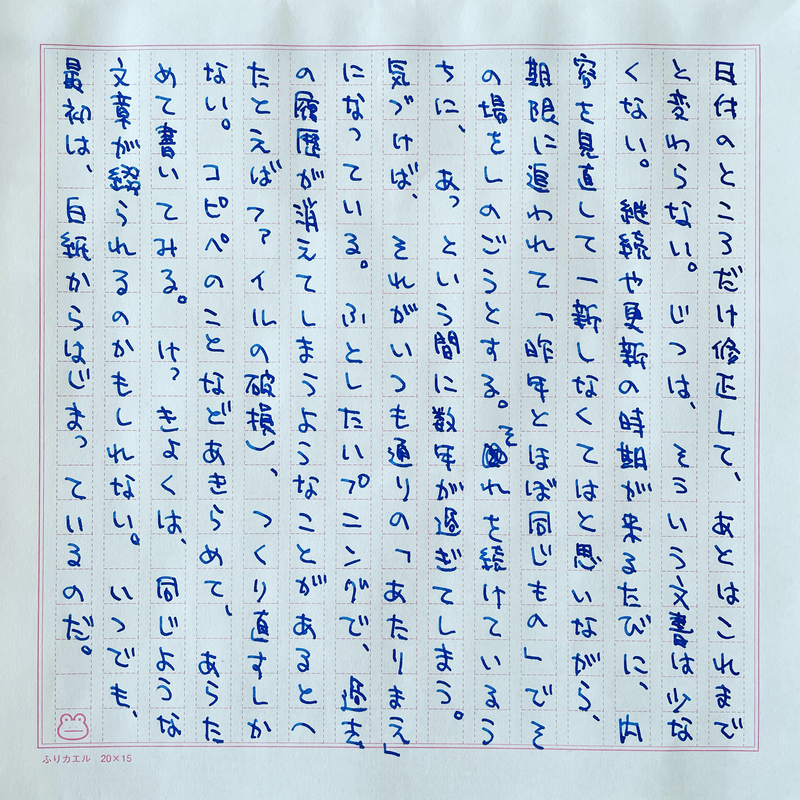 日付のところだけ修正して、あとはこれまで
と変わらない。じつは、そういう文書は少な
くない。継続や更新の時期が来るたびに、内
容を見直して一新しなくてはと思いながら、
期限に追われて「昨年とほぼ同じもの」でそ
の場をしのごうとする。それを続けているう
ちに、あっという間に数年が過ぎてしまう。
気づけば、それがいつも通りの「あたりまえ」
になっている。ふとしたハプニングで、過去
の履歴が消えてしまうようなことがあるとへ
たとえばファイルの破損)、つくり直すしか
ない。コピペのことなどあきらめて、あらた
めて書いてみる。けっきょくは、同じような
文章が綴られるのかもしれない。いつでも、
最初は、白紙からはじまっているのだ。
ふりカエル 20×15